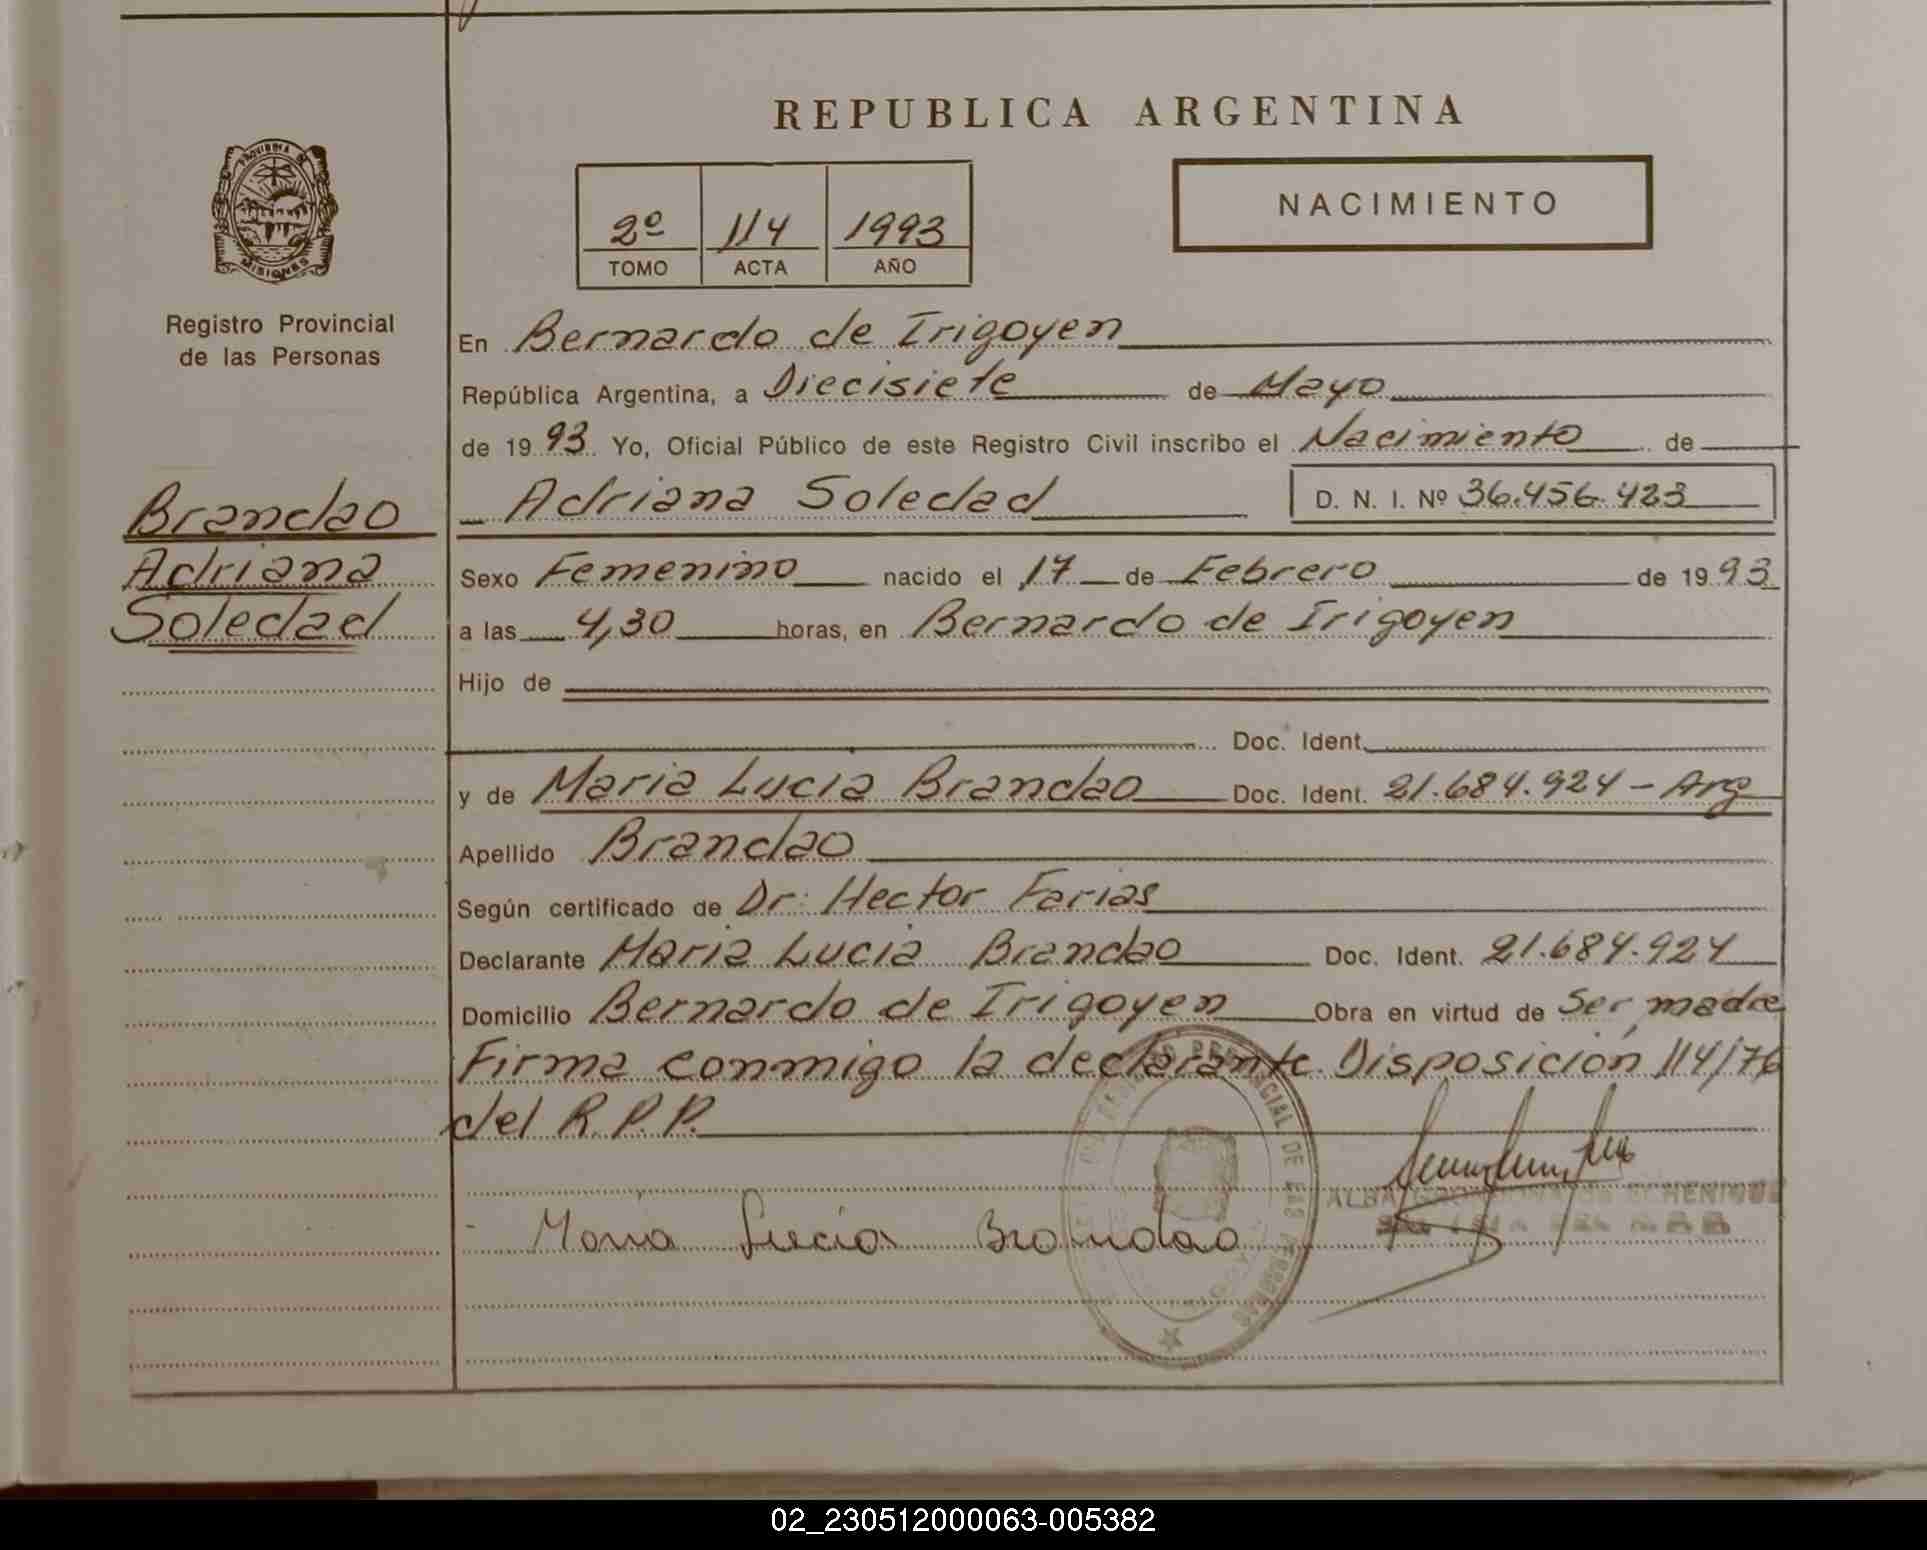 REPUBLICA ARGENTINA
PROVINCIA DE
MISIONES
Registro Provincial
de las Personas
2º 114 1993
TOMO ACTA AÑO
NACIMIENTO
En Bernardo de Irigoyen
República Argentina, a Diecisiete de Mayo
de 1993. Yo, Oficial Público de este Registro Civil inscribo el Nacimiento de
Adriana Soledad D. N. I. Nº 36.456.423
Brandao
Adriana
Soledad
Sexo Femenino nacido el 17 de Febrero de 1993
a las 4,30 horas, en Bernardo de Irigoyen
Hijo de
Doc. Ident.
y de Maria Lucia Brandao Doc. Ident. 21.684.924 - Arg
Apellido Brandao
Según certificado de Dr: Hector Farias
Declarante Maria Lucia Brandao Doc. Ident. 21.684.924
Domicilio Bernardo de Irigoyen Obra en virtud de Ser madre
Firma conmigo la declarante. Disposición 114/76
del R.P.P.
María Lucia Brandao
02_230512000063-005382